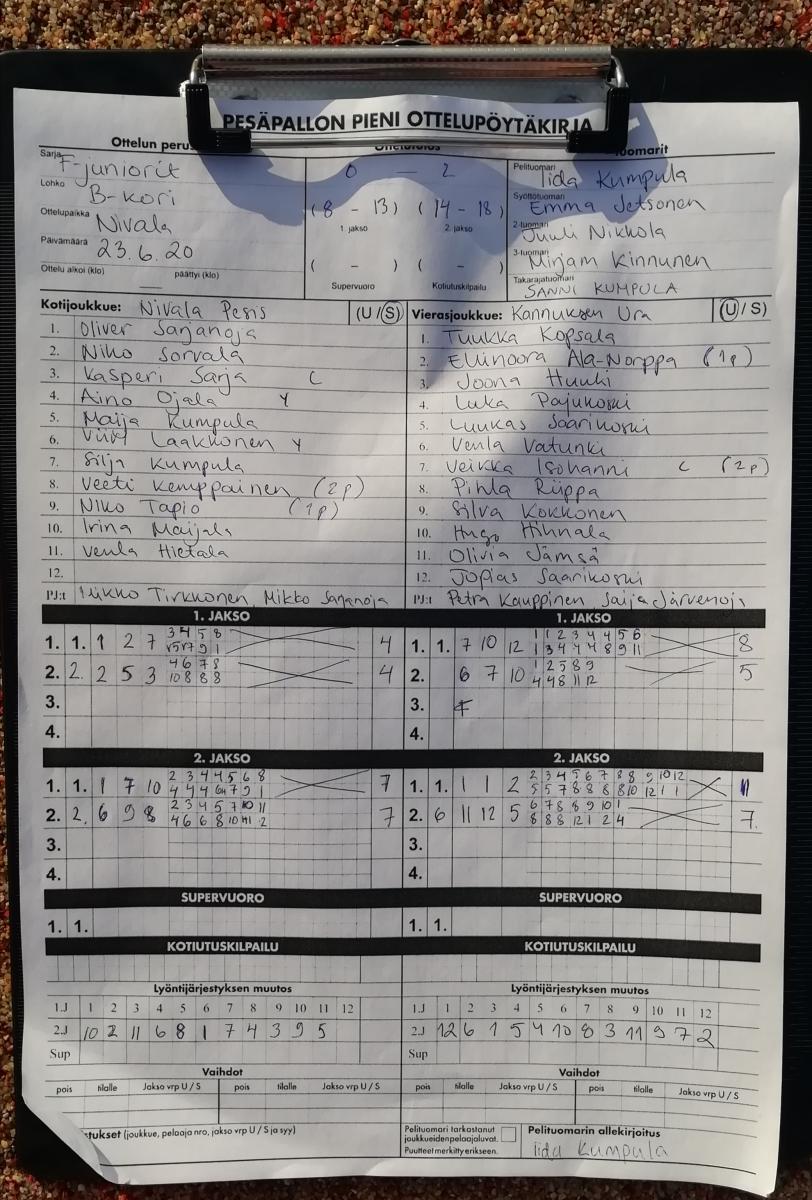 PESÄPALLON PIENI OTTELUPÖYTÄKIRJA
Ottelun perus
Sarja F-juniorit
Lohko B-kori
Ottelupaikka Nivala
Päivämäärä 23.6.20
Ottelu alkoi (klo) päättyi (klo)
0 — 2
(8 - 13) (14 - 18)
1. jakso 2. jakso
( - ) ( - )
Supervuoro Kotiutuskilpailu
tuomarit
Pelituomari Iida Kumpula
Syöttötuomari Emma Jetsonen
2-tuomari Juuli Nikkola
3-tuomari Mirjam Kinnunen
Takarajatuomari SANNI KUMPULA
Kotijoukkue: Nivala Pesis (U / S)
1. Oliver Sarjanoja
2. Niko Sorvala
3. Kasperi Sarja C
4. Aino Ojala Y
5. Maija Kumpula
6. Laakkonen Y
7. Silja Kumpula
8. Veeti Kemppainen (2p)
9. Niko Tapio (1p)
10. Irina Maijala
11. Venla Hietala
12.
PJ:t Mikko Tirkkonen, Mikko Sarjanoja
Vierasjoukkue: Kannuksen Ura (U / S)
1. Tuukka Kopsala
2. Ellinoora Ala-Norppa (1p)
3. Joona Huuki
4. Luka Pajukoski
5. Luukas Saarikoski
6. Venla Vatunki
7. Veikka Isohanni C (2p)
8. Pihla Riippa
9. Silva Kokkonen
10. Hugo Hihnala
11. Olivia Jämsä
12. Jopias Saarikoski
PJ:t Petra Kauppinen Saija Järvenoja
1. JAKSO
1. 1. 1 2 7 3 4 5 8 4
2. 2. 2 5 3 4 6 7 8 4
10 8 8 8
3.
4.
1. JAKSO
1. 1. 7 10 12 1 1 2 3 4 4 5 6 8
1 3 4 4 4 8 9 11
2. 6 7 10 1 2 5 8 9 5
4 4 8 11 12
3.
4.
2. JAKSO
1. 1. 1 7 10 2 3 4 4 5 6 8 7
2. 2. 6 9 8 2 3 4 5 7 10 11 7
4 6 6 8 10 11 2
3.
4.
2. JAKSO
1. 1. 1 1 2 2 3 4 5 6 7 8 8 9 10 12 11
5 5 7 8 8 8 8 10 12 1 1
2. 6 11 12 5 6 7 8 8 9 10 1 7.
8 8 8 12 1 2 4
3.
4.
SUPERVUORO
1. 1.
SUPERVUORO
1. 1.
KOTIUTUSKILPAILU
KOTIUTUSKILPAILU
Lyöntijärjestyksen muutos
1.J 1 2 3 4 5 6 7 8 9 10 11 12
2.J 10 2 11 6 8 1 7 4 3 9 5
Sup
Lyöntijärjestyksen muutos
1.J 1 2 3 4 5 6 7 8 9 10 11 12
2.J 12 6 1 5 4 10 8 3 11 9 7 2
Sup
Vaihdot
pois tilalle Jakso vrp U / S pois tilalle Jakso vrp U / S
Vaihdot
pois tilalle Jakso vrp U / S pois tilalle Jakso vrp U / S
tukset (joukkue, pelaaja nro, jakso vrp U / S ja syy)
Pelituomari tarkastanut
joukkueiden pelaajaluvat.
Puutteet merkitty erikseen.
Pelituomarin allekirjoitus
Iida Kumpula